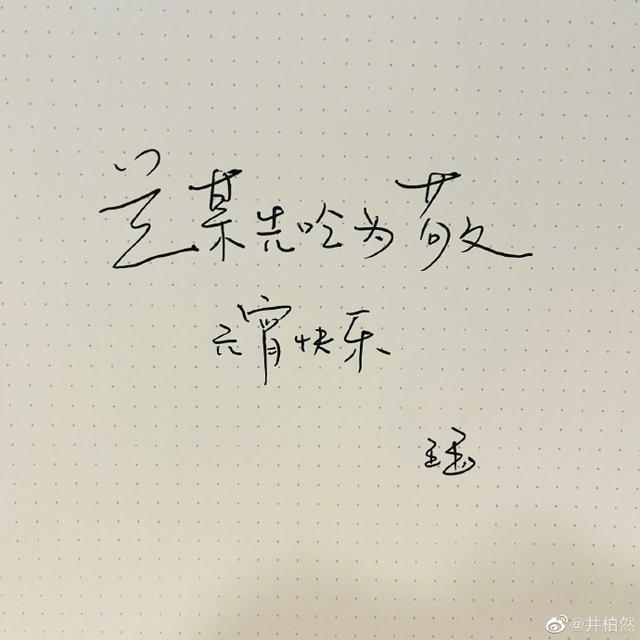 兰某先吃为敬
元宵快乐
珏
@井柏然